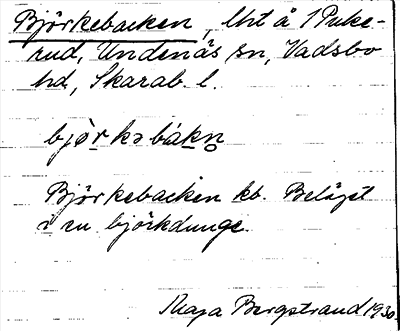 Björkebacken, lht å 1 Puke-
rud, Undenäs sn, Vadsbo
hd, Skarab. l.
björkəbákn̥
Björkebacken kb. Beläget
i en björkdunge.
Maja Bergstrand 1930.